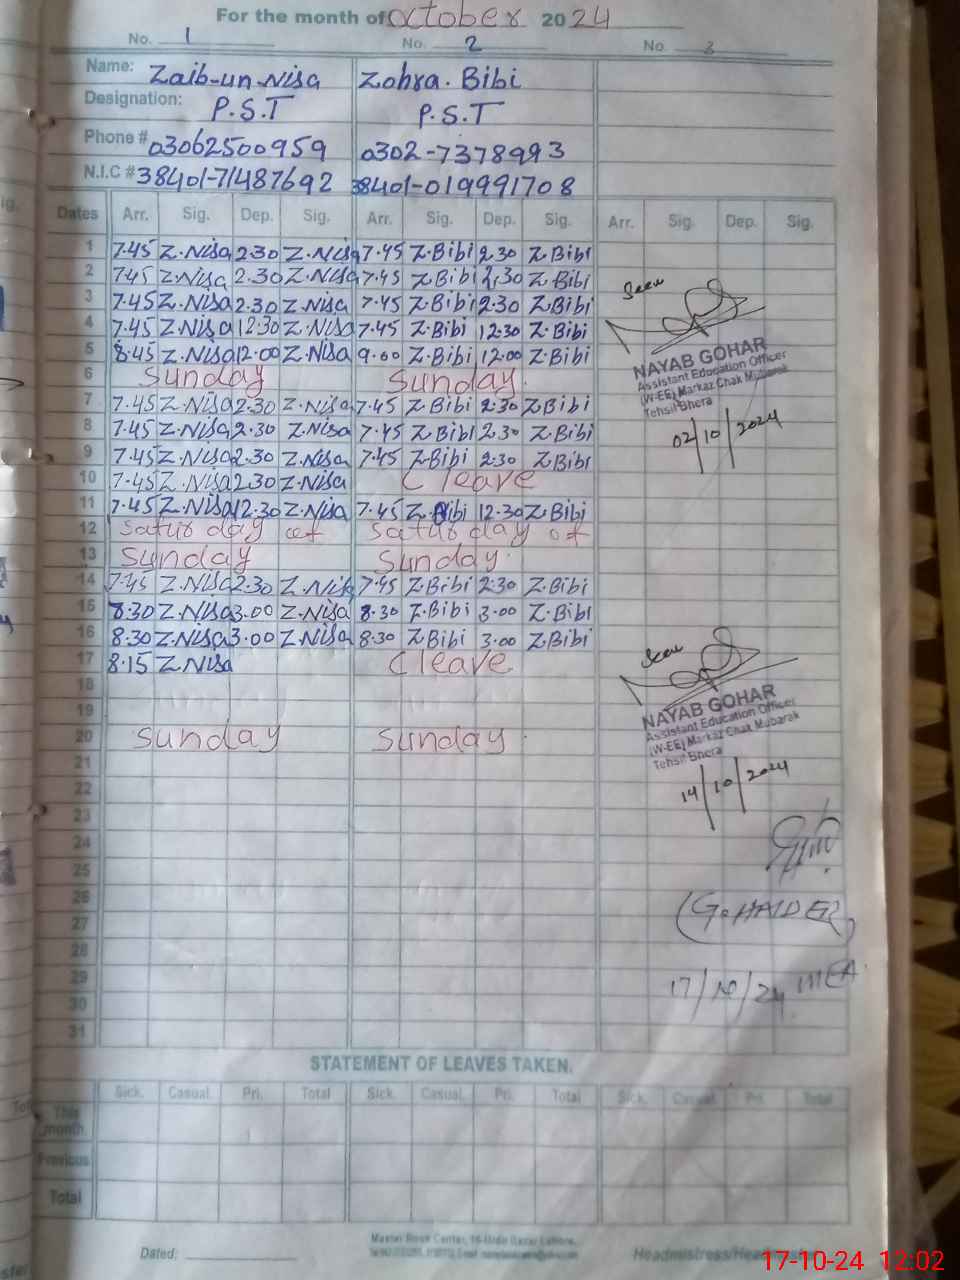 For the month of October 2024
No. 1 No. 2 No. 3
Name: Zaib-un-Nisa Zohra. Bibi
Designation: P.S.T P.S.T
Phone # 03062500959 0302-7378993
N.I.C # 38401-71487692 38401-019991708
Dates Arr. Sig. Dep. Sig. Arr. Sig. Dep. Sig. Arr. Sig. Dep. Sig.
1 7.45 Z.Nisa 2.30 Z.Nisa 7.45 Z.Bibi 2.30 Z.Bibi
2 7.45 Z.Nisa 2.30 Z.Nisa 7.45 Z.Bibi 2.30 Z.Bibi
3 7.45 Z.Nisa 2.30 Z.Nisa 7.45 Z.Bibi 2.30 Z.Bibi
4 7.45 Z.Nisa 12.30 Z.Nisa 7.45 Z.Bibi 12.30 Z.Bibi
5 8.45 Z.Nisa 12.00 Z.Nisa 9.00 Z.Bibi 12.00 Z.Bibi
6 Sunday Sunday
7 7.45 Z.Nisa 2.30 Z.Nisa 7.45 Z.Bibi 2.30 Z.Bibi
8 7.45 Z.Nisa 2.30 Z.Nisa 7.45 Z.Bibi 2.30 Z.Bibi
9 7.45 Z.Nisa 2.30 Z.Nisa 7.45 Z.Bibi 2.30 Z.Bibi
10 7.45 Z.Nisa 2.30 Z.Nisa C leave
11 7.45 Z.Nisa 12.30 Z.Nisa 7.45 Z.Bibi 12.30 Z.Bibi
12 Satur day of Satur day of
13 Sunday Sunday
14 7.45 Z.Nisa 2.30 Z.Nisa 7.45 Z.Bibi 2.30 Z.Bibi
15 8.30 Z.Nisa 3.00 Z.Nisa 8.30 Z.Bibi 3.00 Z.Bibi
16 8.30 Z.Nisa 3.00 Z.Nisa 8.30 Z.Bibi 3.00 Z.Bibi
17 8.15 Z.Nisa C leave
18
19
20 Sunday Sunday
21
22
23
24
25
26
27
28
29
30
31
Seen
NAYAB GOHAR
Assistant Education Officer
(W-EE) Markaz Chak Mubarak
Tehsil Bhera
02/10/2024
Seen
NAYAB GOHAR
Assistant Education Officer
(W-EE) Markaz Chak Mubarak
Tehsil Bhera
14/10/2024
(G. HAIDER)
17/10/24 MEA
STATEMENT OF LEAVES TAKEN.
Sick. Casual. Pri. Total Sick. Casual. Pri. Total Sick. Casual. Pri. Total
This month.
Previous
Total
Dated:
17-10-24 12:02